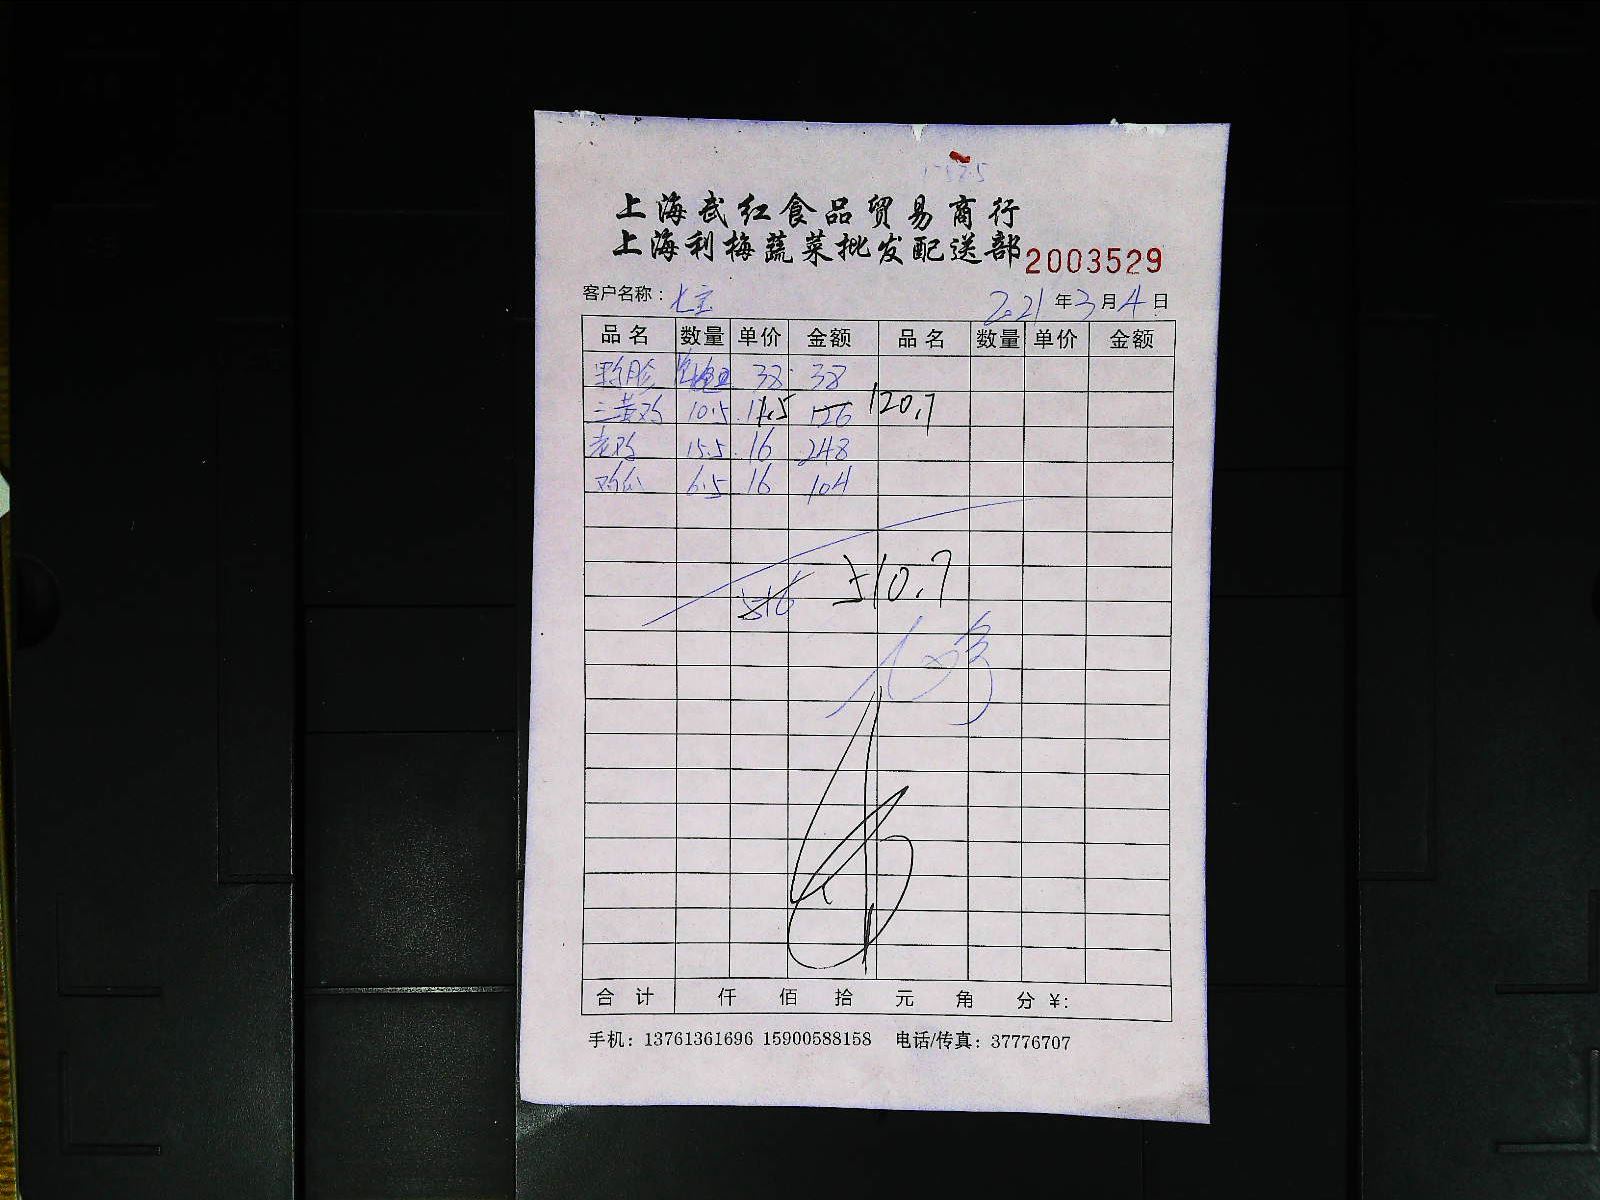 上海武红食品贸易商行
上海利梅蔬菜批发配送部 2003529
客户名称： 2021年3月4日
品名 数量 单价 金额 品名 数量 单价 金额
38 38
三黄鸡 10.5 11.5 126 120.7
老鸡 15.5 16 248
6.5 16 104
516 510.7
合计 仟 佰 拾 元 角 分 ¥:
手机：13761361696 15900588158 电话/传真：37776707